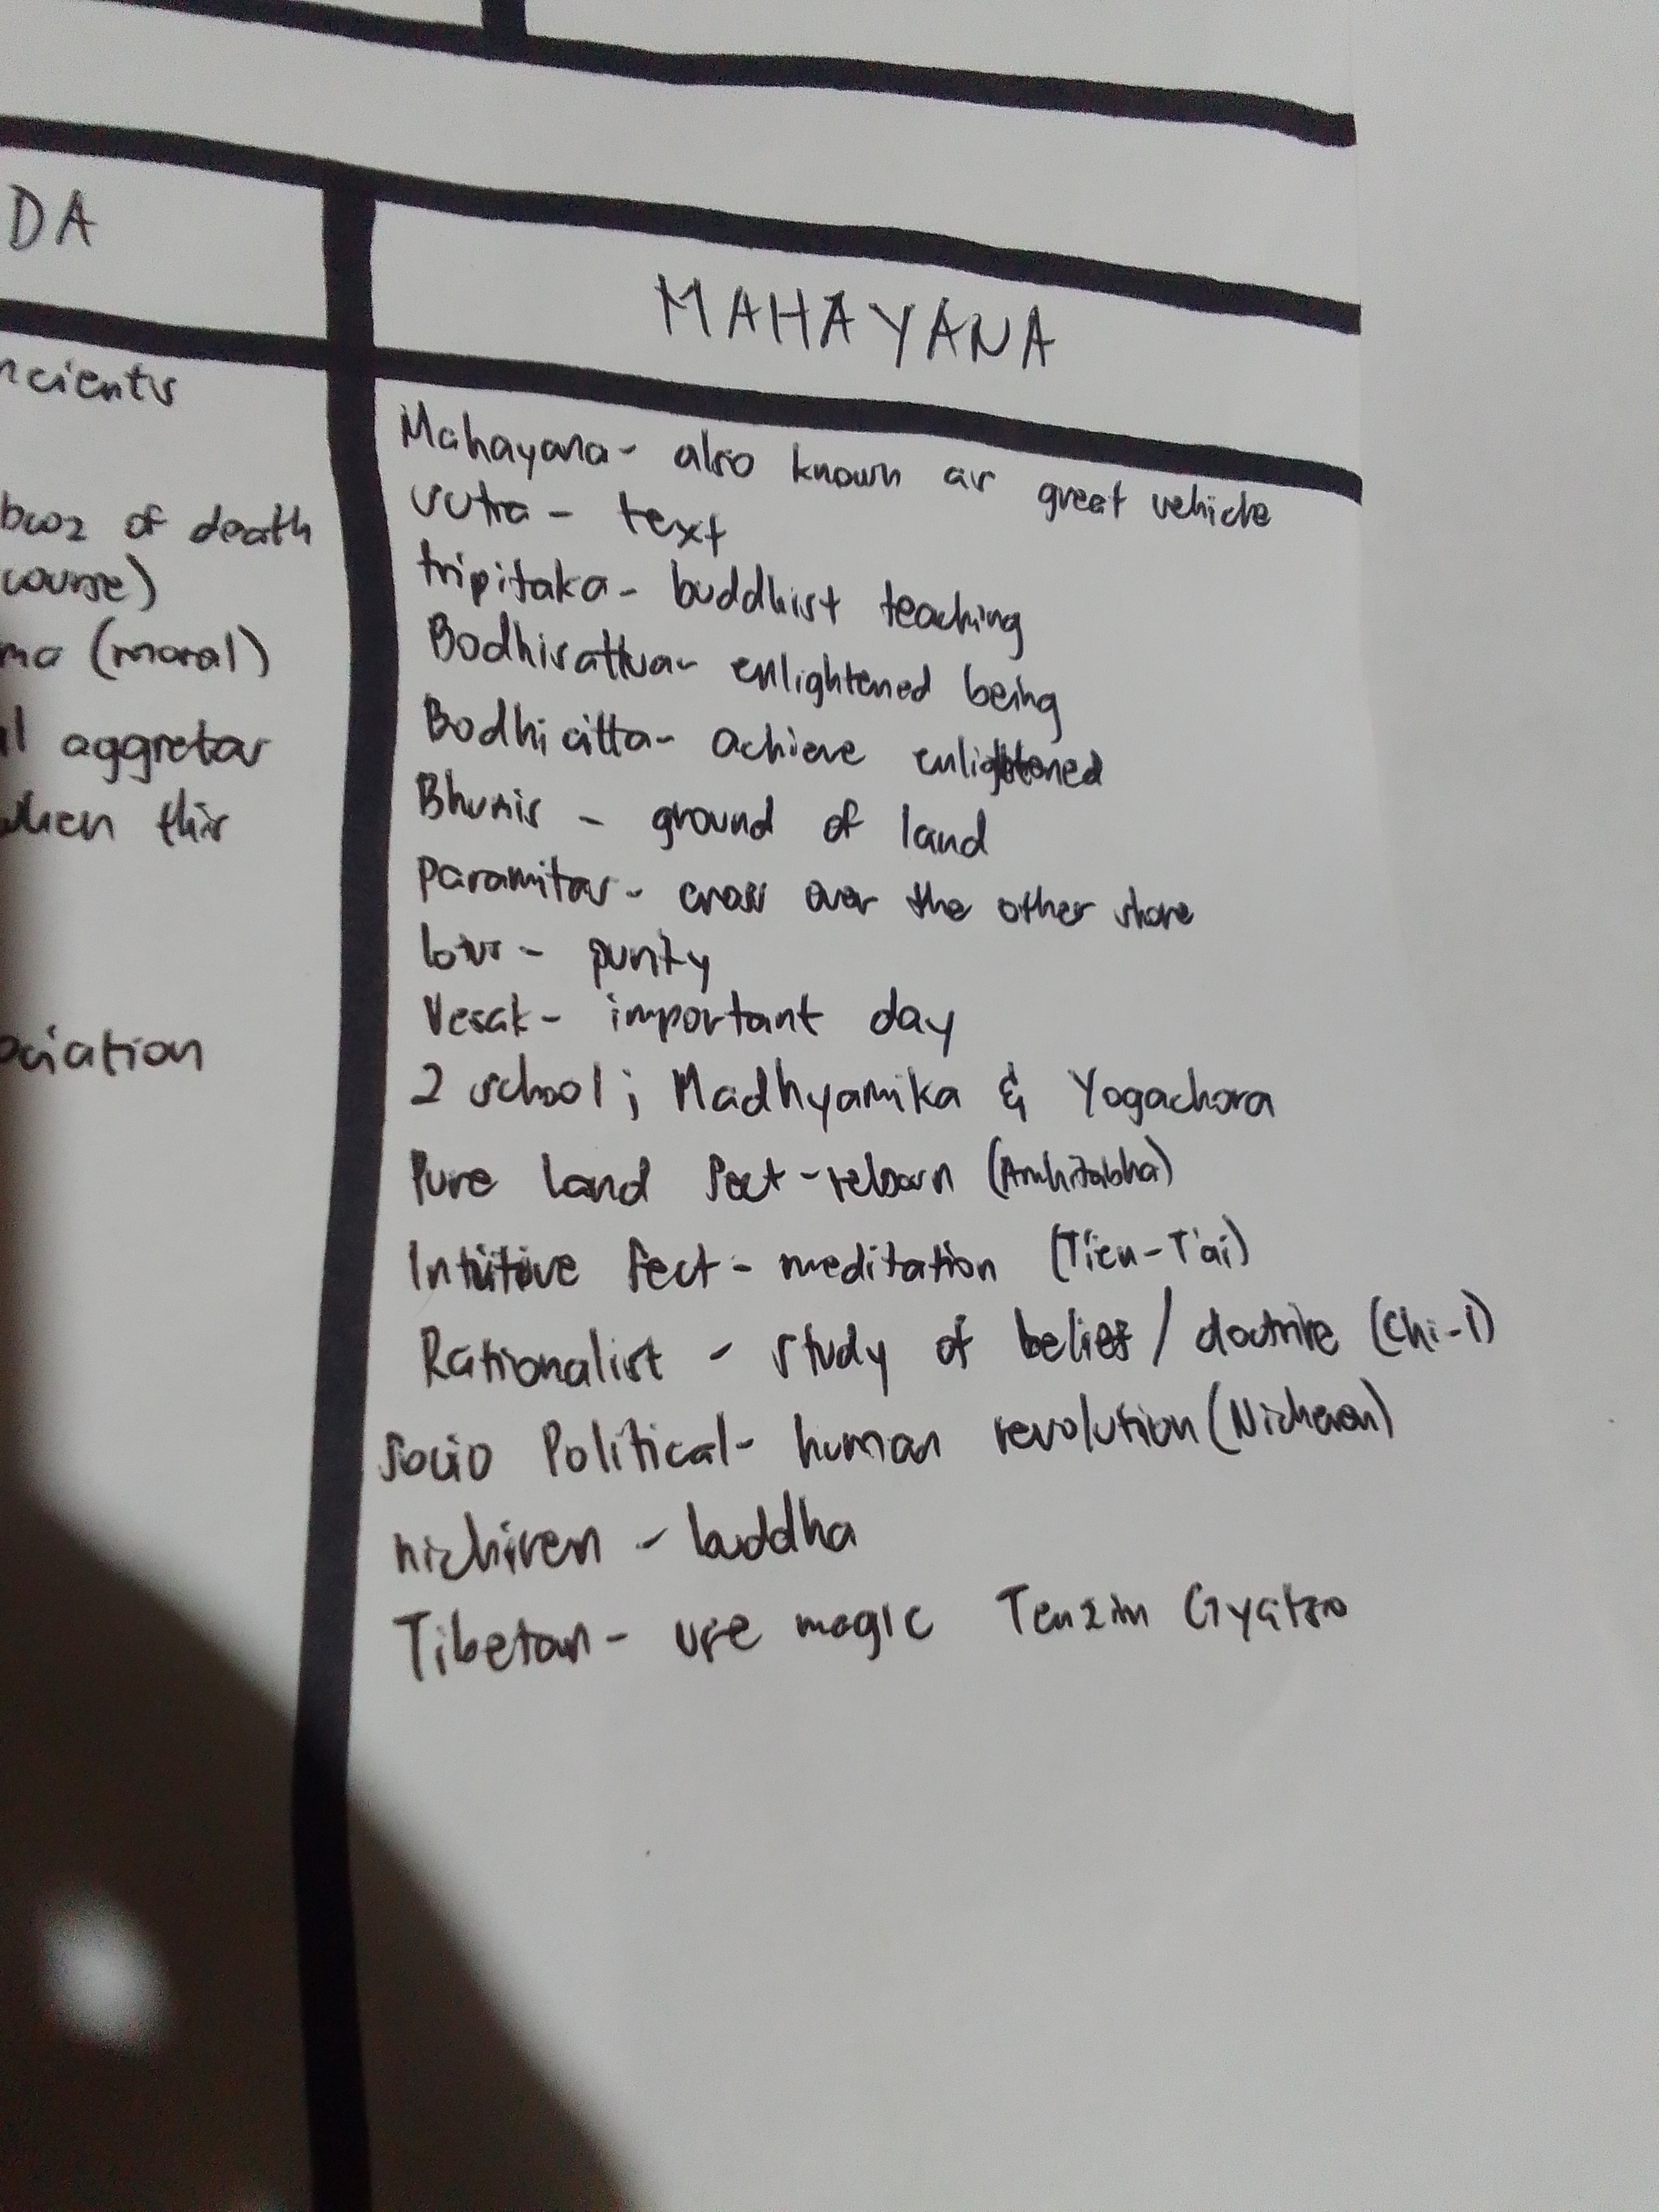 DA
MAHAYANA
ncients
of death
course)
ma (moral)
l aggretas
when this
ociation
Mahayana- also known as great vehicle
sutra - text
tripitaka - buddhist teaching
Bodhisattva- enlightened being
Bodhicitta- achieve enlightened
Bhumis - ground of land
Paramitas- cross over the other shore
lotus - purity
Vesak - important day
2 school; Madhyamika & Yogachara
Pure Land Sect - reborn (Amhitabha)
Intuitive Sect - meditation (Tien-T'ai)
Rationalist - study of belief / doctrine (Chi-I)
Socio Political- human revolution (Nicheren)
nichiren - buddha
Tibetan - use magic Tenzin Gyatso